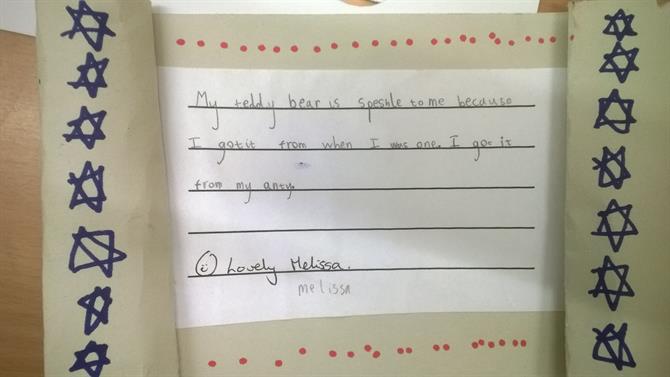 My teddy bear is speshle to me because
I got it from when I was one. I got it
from my anty.
☺ Lovely Melissa.
melissa